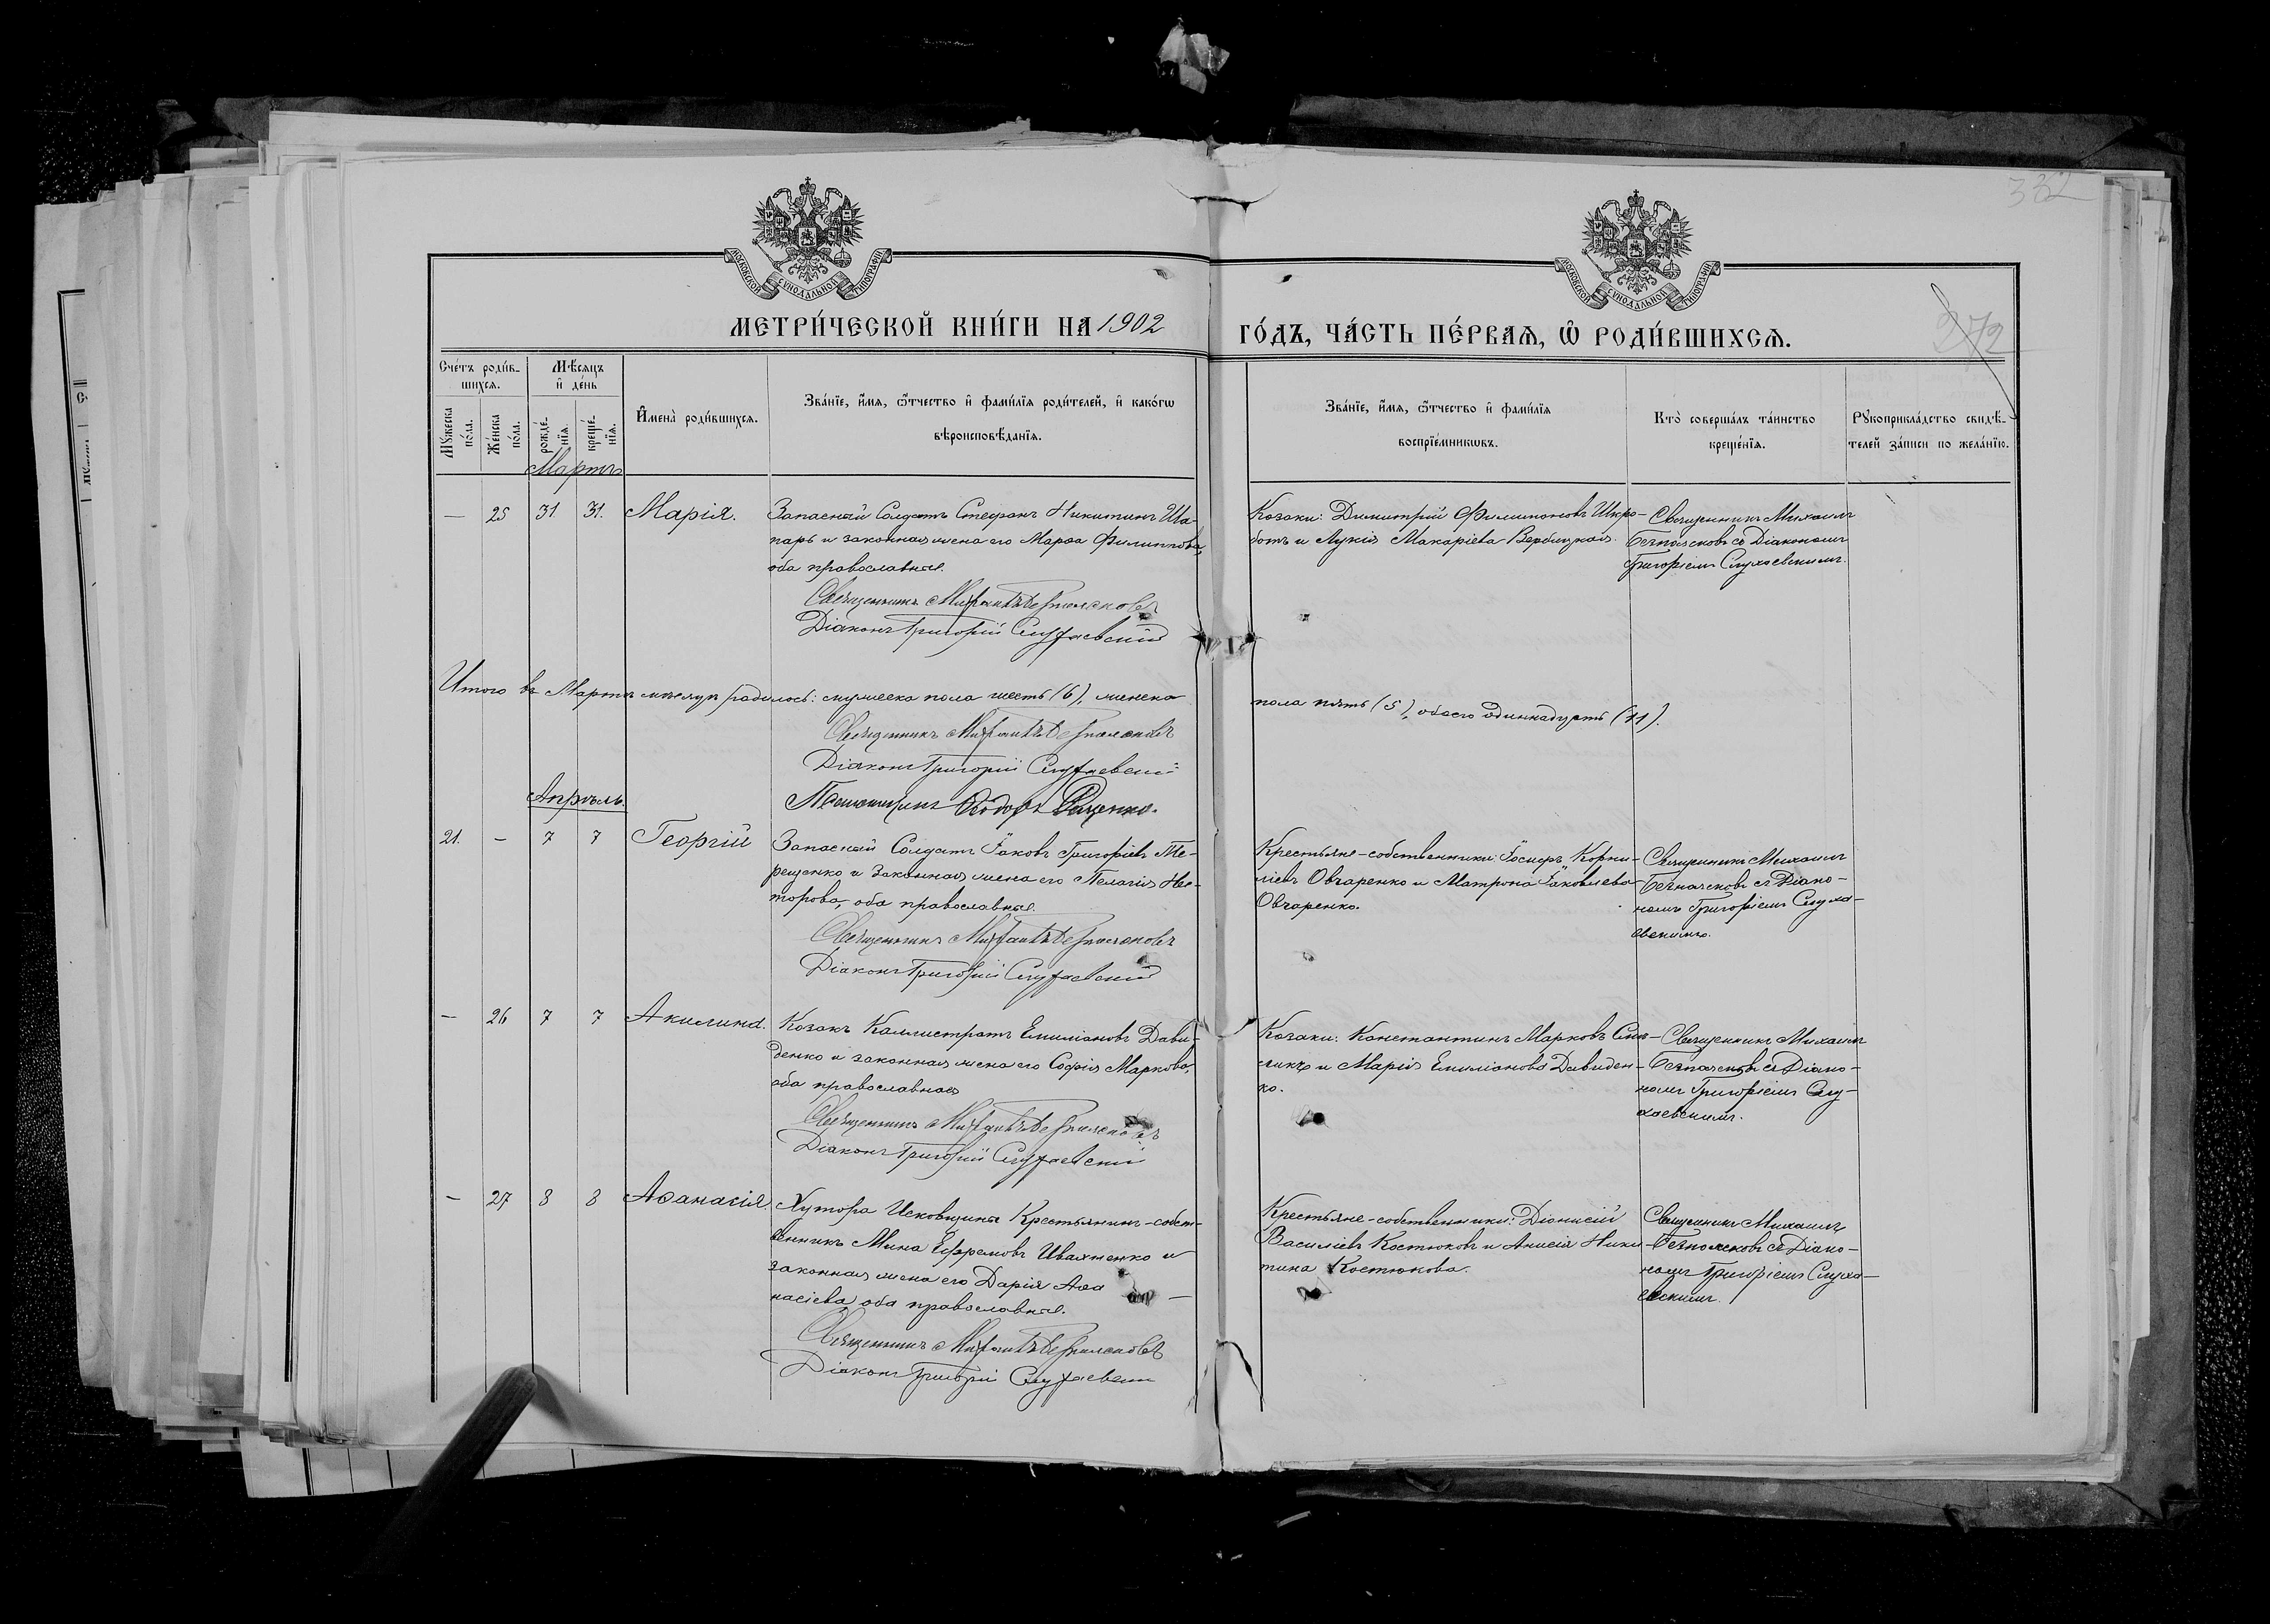 332
МОСКОВСКОЙ СѴНОДАЛЬНОЙ ТИПОГРАФІИ
МОСКОВСКОЙ СѴНОДАЛЬНОЙ ТИПОГРАФІИ
МЕТРИ́ЧЕСКОЙ КНИ́ГИ НА 1902
ГО́ДЪ, ЧА́СТЬ ПЕ́РВАѦ, Ѽ РОДИ́ВШИХСѦ.
272
Сче́тъ роди́в-
шихсѧ.
Мѣ́сѧцъ
и҆ де́нь
Мꙋ́жеска
по́ла.
Же́нска
по́ла.
рожде́-
нїѧ.
креще́-
нїѧ.
И҆мена̀ роди́вшихсѧ.
Зва́нїе, и҆́мѧ, ѻ҆́тчество и҆ фами́лїѧ роди́телей, и҆ како́гѡ
вѣроисповѣ́данїѧ.
Зва́нїе, и҆́мѧ, ѻ҆́тчество и҆ фами́лїѧ
воспрїе́мникѡвъ.
Кто̀ соверша́лъ та́инство
креще́нїѧ.
Рꙋкоприкла́дство свидѣ́-
телей за́писи по жела́нїю.
Мартъ
— 25 31. 31. Марія.
Запасный Солдатъ Стефанъ Никитинъ Ша-
парь и законная жена его Марѳа Филиппова,
оба православные.
Священникъ Михаилъ Безпалсковъ
Діаконъ Григорій Слухаевскій
Козаки: Димитрій Филимоновъ Шкро-
ботъ и Лукія Макаріева Вербицкая.
Священникъ Михаилъ
съ Діакономъ
Григоріемъ Слухаевскимъ.
Итого въ Мартѣ мѣсяцѣ родилось: мужеска пола шесть (6), женска
пола пять (5), обоего одиннадцать (11).
Священникъ Михаилъ
Діаконъ Григорій Слухаевскій
Псаломщикъ Ѳеодоръ
Апрѣль.
21. — 7 7 Георгій
Запасный Солдатъ Іаковъ Григоріевъ Те-
рещенко и законная жена его Пелагія Нес-
торова, оба православные.
Священникъ Михаилъ
Діаконъ Григорій Слухаевскій
Крестьяне-собственники: Іосифъ Корни-
ліевъ Овчаренко и Матрона Іаковлева
Овчаренко.
Священникъ Михаилъ
съ Діако-
номъ Григоріемъ Слуха-
евскимъ.
— 26 7 7 Акилина.
Козакъ Каллистратъ Емиліановъ Дави-
денко и законная жена его Софія Маркова,
оба православная
Священникъ Михаилъ
Діаконъ Григорій Слухаевскій
Козаки: Константинъ Марковъ
и Марія Емиліанова Давиден-
ко.
Священникъ Михаилъ
съ Діако-
номъ Григоріемъ Слу-
хаевскимъ.
— 27 8 8 Аѳанасія.
Хутора Исковщины Крестьянинъ-собст-
венникъ Мина Ефремовъ Ивахненко и
законная жена его Дарія Аѳа
насіева, оба православные.
Священникъ Михаилъ
Діаконъ Григорій Слухаевскій
Крестьяне-собственники: Діонисій
Василіевъ Костюковъ и Анисія Ники
тина Костюкова.
Священникъ Михаилъ
съ Діако-
номъ Григоріемъ Слуха-
евскимъ.